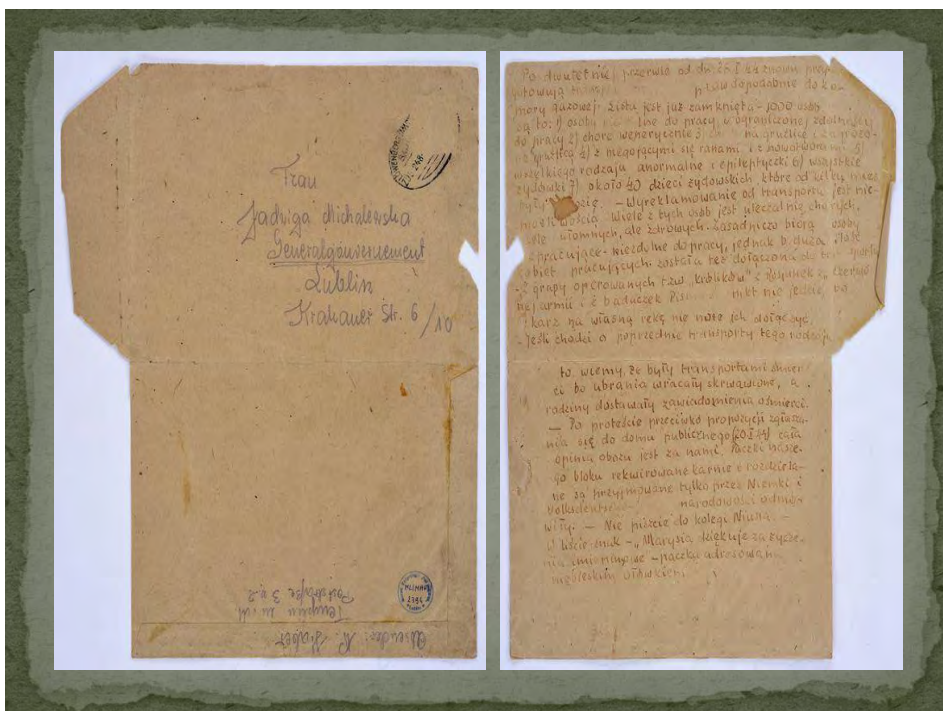 Frau
Jadwiga Michalewska
Generalgouvernement
Lublin
Krakauer Str. 6/10
Absender: N.
Templin
3 u. 2
Po dwuletniej przerwie od dn. znown
gotowują prawdopodobnie do ko-
mory gazowej. Lista jest już zamknięta – 1000 osób
są to: 1) osoby do pracy, w ograniczonej zdolności
do pracy 2) chore wenerycznie 3) na gruźlicę i
gruźlicą 4) z niegojącymi się ranami i z nowotworami 5)
wszelkiego rodzaju anormalne i epileptyczki 6) wszystkie
żydówki 7) około 40 dzieci żydowskich, które od kilku mies.
były – Wyreklamowanie od transportu jest nie-
możliwością. Wiele z tych osób jest uleczalnie chorych,
ułomnych, ale zdrowych. Zasadniczo biorą osoby
pracujące – niezdolne do pracy, jednak b. duża ilość
kobiet pracujących została też dołączona do transportu
– Z grupy operowanych tzw. „królików” z Rosjanek z
nej armii i z badaczek nikt nie jedzie, bo
lekarz na własną rękę nie może ich dołączyć.
– Jeśli chodzi o poprzednie transporty tego rodzaju
to wiemy, że były transportami śmier-
ci bo ubrania wracały skrwawione, a
rodziny dostawały zawiadomienia o śmierci.
– Po proteście przeciwko propozycji zgłasza-
nia się do domu publicznego cała
opinia obozu jest za nami. Paczki nasze-
go bloku rekwirowane karnie i rozdziela-
ne są przyjmowane tylko przez Niemki i
Volksdeutschki narodowości odmó-
wiły. – Nie piszcie do kolegi Niusi. –
W liście znak – „Marysia dziękuje za życze-
nia imieninowe” – paczka adresowana
niebieskim ołówkiem.